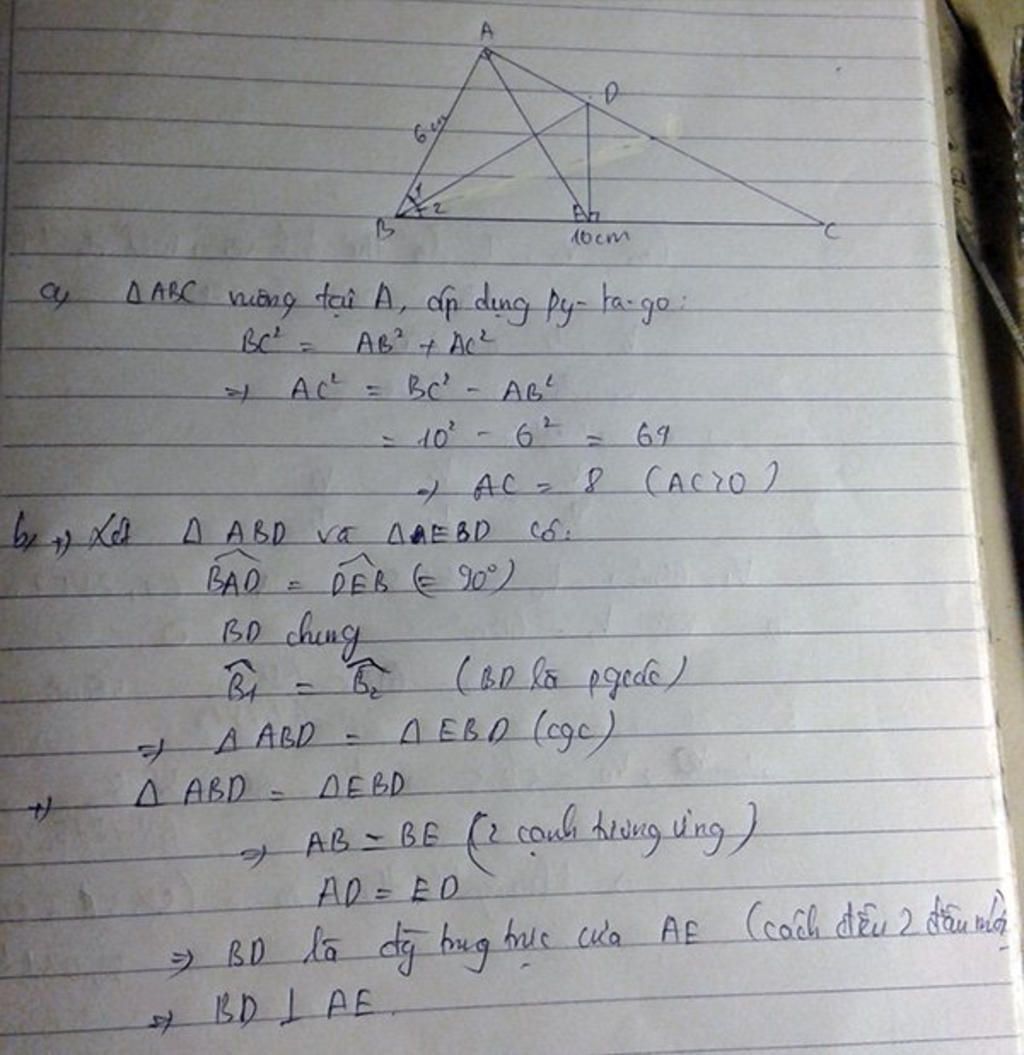 A
D
6cm
1
2
B
E
C
10cm
a, ΔABC vuông tại A, áp dụng Py-ta-go:
BC² = AB² + AC²
=> AC² = BC² - AB²
= 10² - 6² = 64
=> AC = 8 (AC>0)
b, +) Xét Δ ABD và ΔEBD có:
BAD = DEB (= 90°)
BD chung
B1 = B2 (BD là pgcác)
=> Δ ABD = Δ EBD (cgc)
+) Δ ABD = ΔEBD
=> AB = BE (2 cạnh tương ứng)
AD = ED
=> BD là đg trung trực của AE (cách đều 2 đầu mút
=> BD ⊥ AE.